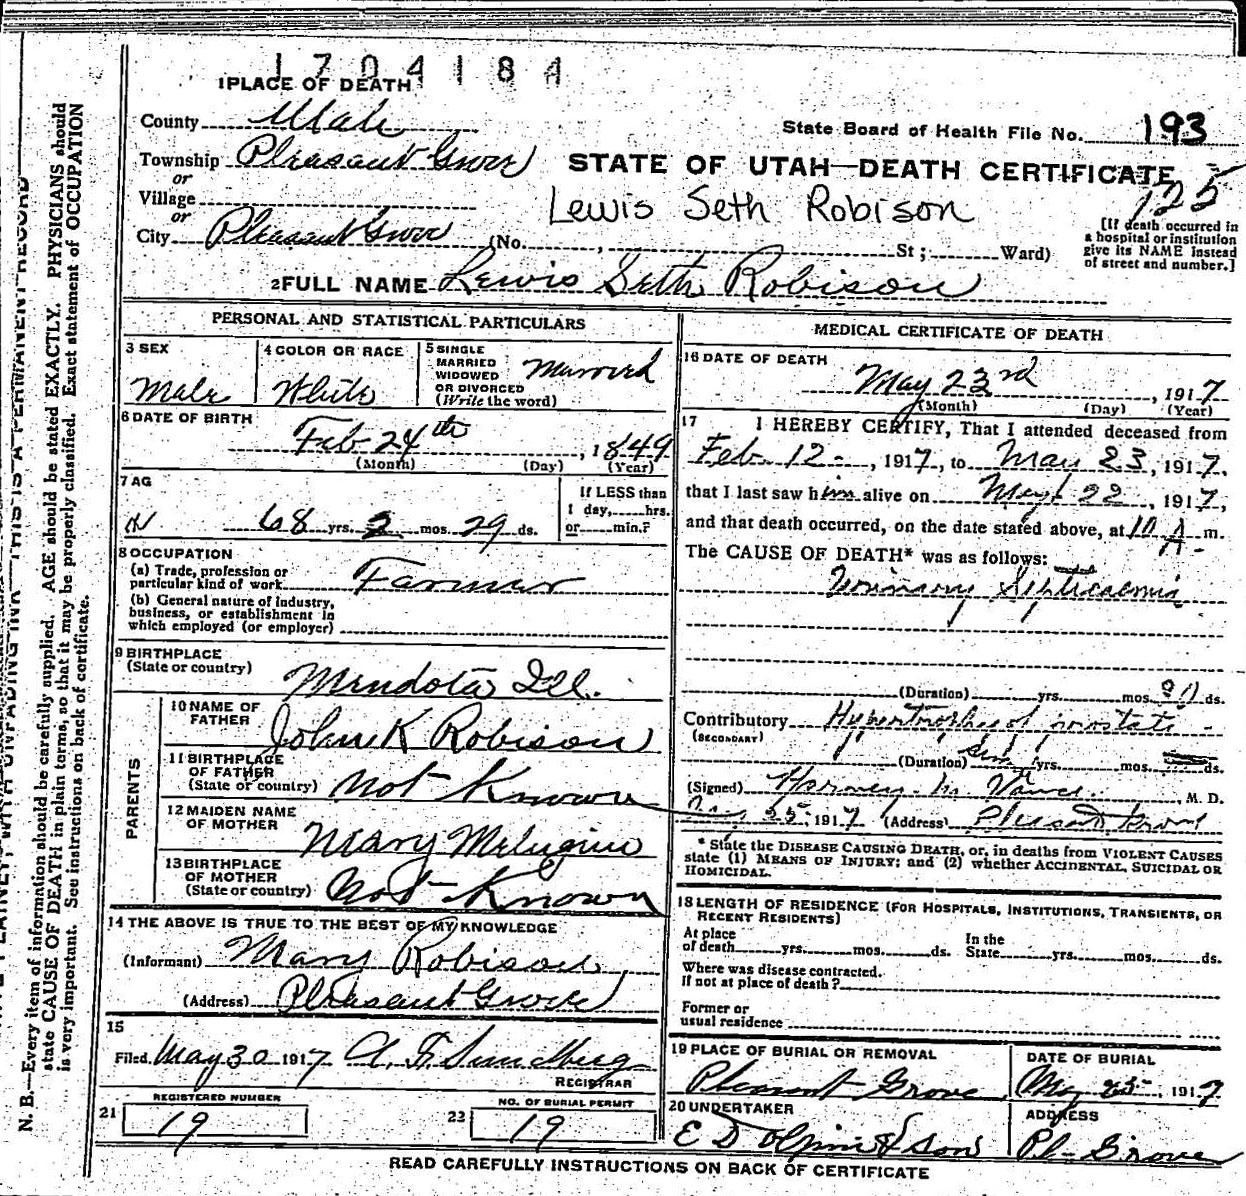 1704184
1 PLACE OF DEATH
County Utah
State Board of Health File No. 193
Township Pleasant Grove
or
STATE OF UTAH—DEATH CERTIFICATE
125
Village
or
Lewis Seth Robison
City Pleasant Grove (No. , St ; Ward)
[If death occurred in
a hospital or institution
give its NAME instead
of street and number.]
2 FULL NAME Lewis Seth Robison
PERSONAL AND STATISTICAL PARTICULARS
3 SEX
Male
4 COLOR OR RACE
White
5 SINGLE
MARRIED
WIDOWED
OR DIVORCED
(Write the word)
Married
6 DATE OF BIRTH
Feb 24th , 1849
(Month) (Day) (Year)
7 AG
68 yrs. 2 mos. 29 ds.
If LESS than
1 day, hrs.
or min.?
8 OCCUPATION
(a) Trade, profession or
particular kind of work Farmer
(b) General nature of industry,
business, or establishment in
which employed (or employer)
9 BIRTHPLACE
(State or country)
Mendota Ill.
PARENTS
10 NAME OF
FATHER
John K Robison
11 BIRTHPLACE
OF FATHER
(State or country) Not Known
12 MAIDEN NAME
OF MOTHER
Mary
13 BIRTHPLACE
OF MOTHER
(State or country) Not Known
14 THE ABOVE IS TRUE TO THE BEST OF MY KNOWLEDGE
(Informant) Mary Robison
(Address) Pleasant Grove
15
Filed May 30 1917
REGISTRAR
REGISTERED NUMBER
21 19
NO. OF BURIAL PERMIT
23 19
MEDICAL CERTIFICATE OF DEATH
16 DATE OF DEATH
May 23rd , 1917
(Month) (Day) (Year)
17 I HEREBY CERTIFY, That I attended deceased from
Feb. 12 , 1917, to May 23, 1917.
that I last saw him alive on May 22 , 1917,
and that death occurred, on the date stated above, at 10 A m.
The CAUSE OF DEATH* was as follows:
Urinary Septicaemia
(Duration) yrs. mos. ds.
Contributory Hypertrophy of prostate
(SECONDARY)
(Duration) yrs. mos. ds.
(Signed) M. D.
25, 1917 (Address) Pleasant Grove
* State the DISEASE CAUSING DEATH, or, in deaths from VIOLENT CAUSES
state (1) MEANS OF INJURY; and (2) whether ACCIDENTAL, SUICIDAL OR
HOMICIDAL.
18 LENGTH OF RESIDENCE (FOR HOSPITALS, INSTITUTIONS, TRANSIENTS, OR
RECENT RESIDENTS)
At place
of death yrs. mos. ds.
In the
State yrs. mos. ds.
Where was disease contracted.
If not at place of death?
Former or
usual residence
19 PLACE OF BURIAL OR REMOVAL
Pleasant Grove
DATE OF BURIAL
May 25 1917
20 UNDERTAKER
E D Olpin & Son
ADDRESS
Pl- Grove
READ CAREFULLY INSTRUCTIONS ON BACK OF CERTIFICATE
N. B.—Every item of information should be carefully supplied. AGE should be stated EXACTLY. PHYSICIANS should
state CAUSE OF DEATH in plain terms, so that it may be properly classified. Exact statement of OCCUPATION
is very important. See instructions on back of certificate.